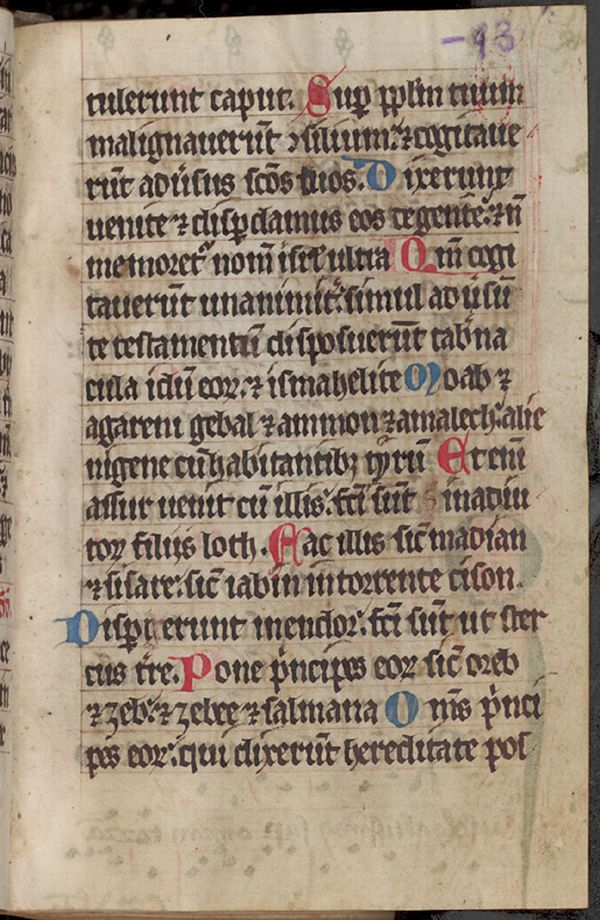 -93
tulerunt caput. Sup̲ pp̄lm tuum
malignauerūt ꝯsilium: ⁊ cogitaue
rūt adūsus sc̄os tuos. Dixerunt
uenite ⁊ disp̲damus eos de gente: ⁊ ñ
memoret᷑ nom̄ isrl̄ ultra Qm̄ cogi
tauerūt unanimit̄: simul adūsū
te testamentū disposuerūt tab̄na
cula idūeoꝝ: ⁊ ismahelite Moab ⁊
agareni gebal ⁊ ammon ⁊ amalech: alie
nigene cū habitantibꝫ tyrū Eteni᷒
assur uenit cū illis: fc̄i sūt in adiu
toꝝ filijs loth. Fac illis sic̄ madian
⁊ sisare: sic̄ iabin in torrente cison.
Disp̲ierunt in endoꝛ: fc̄i sūt ut ster
cus tr̄e. Pone p̄ncipes eoꝝ sic̄ oreb
⁊ zeb: ⁊ zebee ⁊ salmana Om̄s p̄nci
pes eoꝝ: qui dixerūt hereditate pos